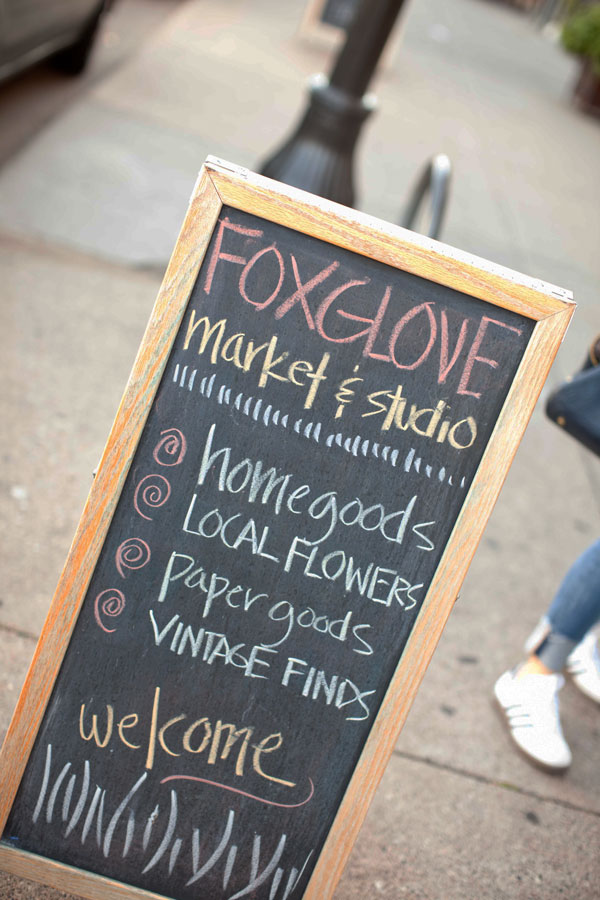 FOXGLOVE
market & studio
homegoods
LOCAL FLOWERS
paper goods
VINTAGE FINDS
welcome